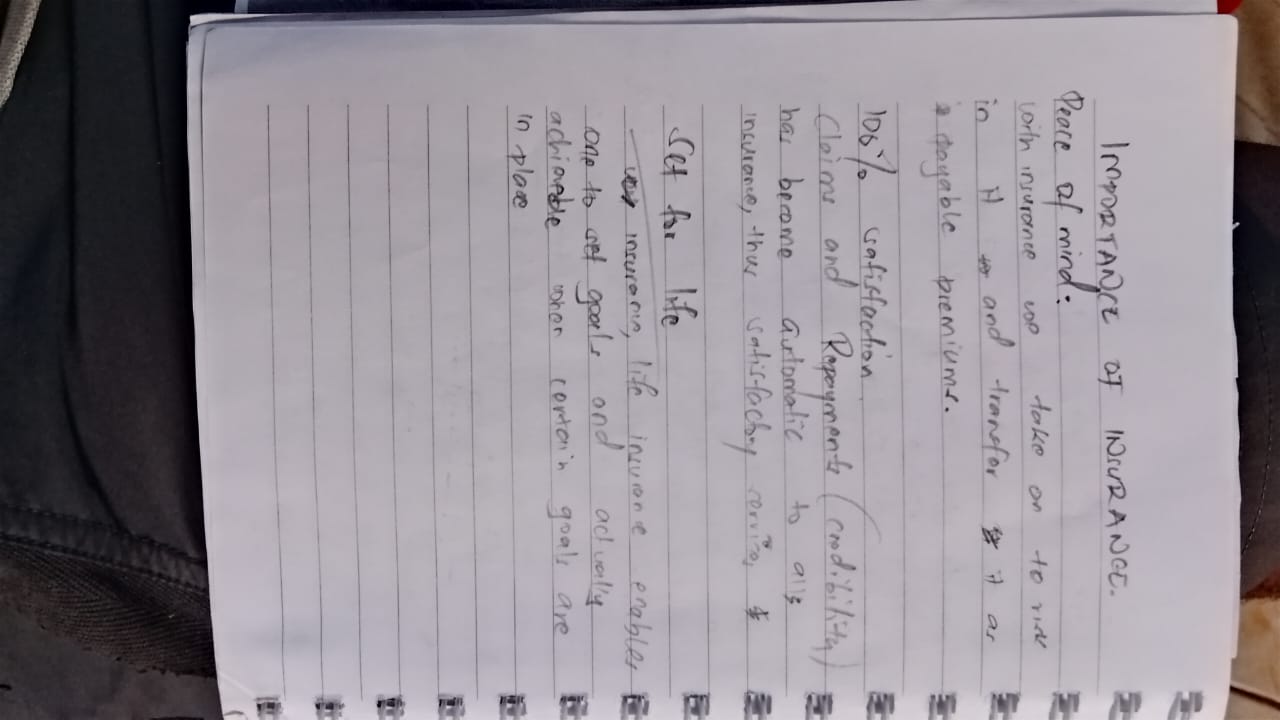 IMPORTANCE OF INSURANCE.
Peace of mind:
with insurance we take on to risk
in it and transfer it as
payable premiums.
100% satisfaction
Claims and Repayments (credibility)
has become automatic to all
insurance, thus satisfactory service,
Set for life
insurance, life insurance enables
one to set goals and actually
achievable when certain goals are
in place